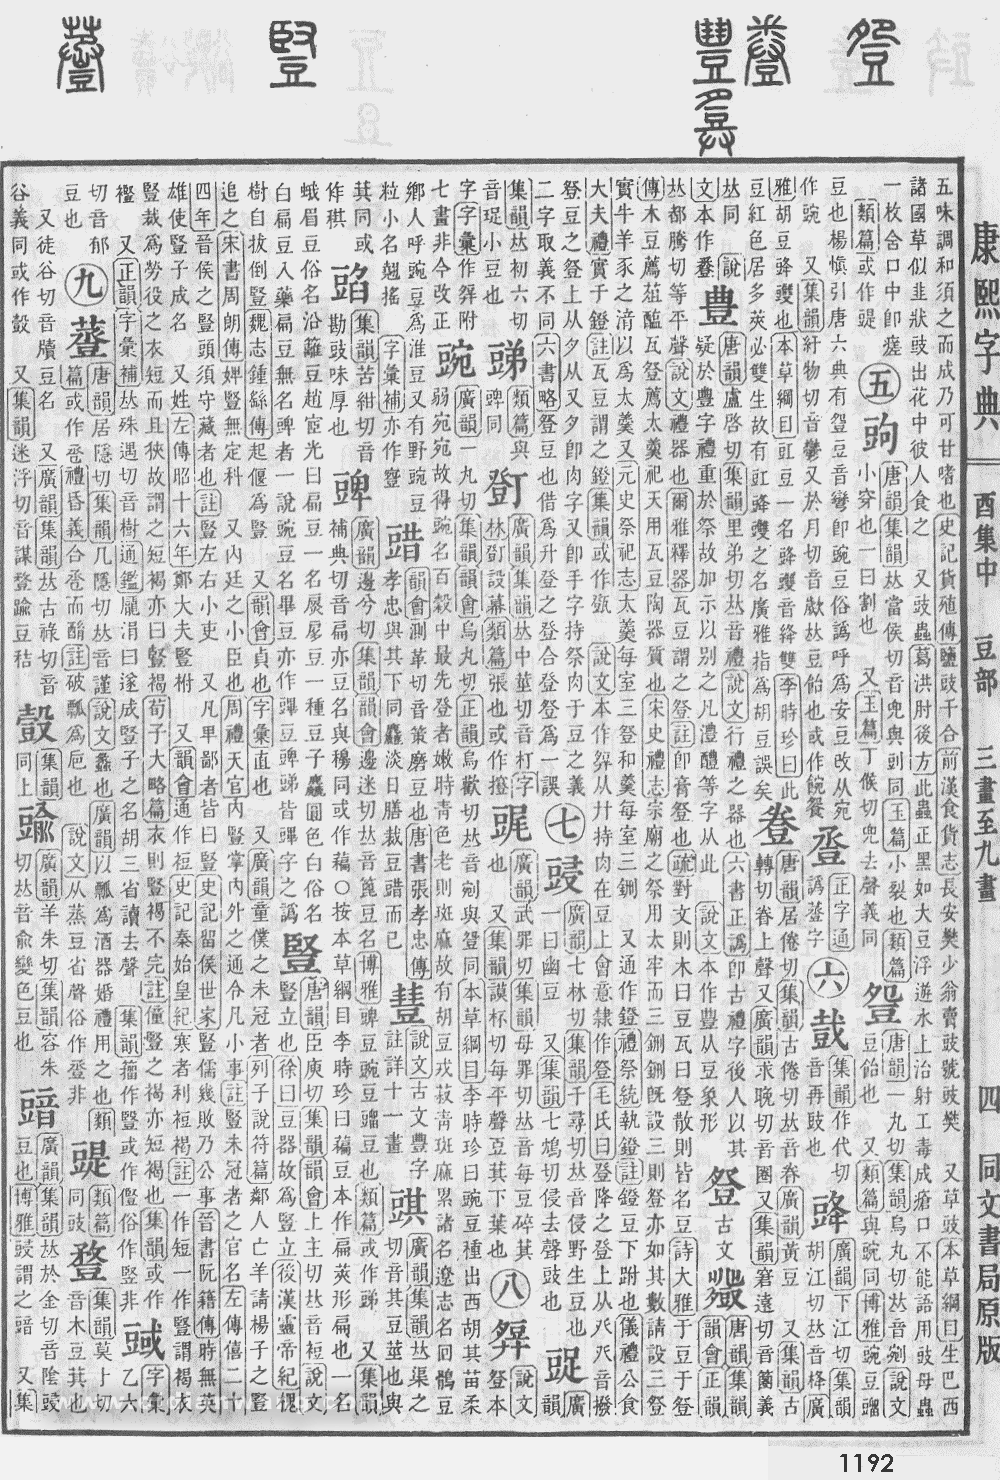 康熙字典 酉集中 豆部 三畫至九畫 四 同文書局原版
五味調和須之而成乃可甘嗜也史記貨殖傳鹽豉千合前漢食貨志長安樊少翁賣豉號豉樊 又草豉本草綱目生巴西
諸國草似韭狀豉出花中彼人食之 又豉蟲葛洪肘後方此蟲正黑如大豆浮遊水上治射工毒成瘡口不能語用豉母蟲
一枚合口中卽瘥
類篇或作䜻
五
唐韻集韻𠀤當侯切音兜與剅同玉篇小裂也類篇
小穿也一曰割也 又玉篇丁候切兜去聲義同
豋
唐韻一九切集韻烏丸切𠀤音剜說文
豆飴也 又類篇與豌同博雅豌豆䝁
豆也楊愼引唐六典有䝀豆音彎卽豌豆俗譌呼爲安豆改从宛
作豌 又集韻紆物切音鬱又於月切音㰲𠀤豆飴也或作䬵䬼
豋
正字通
譌䒱字
六
集韻作代切
音再豉也
䜶
廣韻下江切集韻
胡江切𠀤音栙廣
雅胡豆䜶䝄也本草綱目豇豆一名䜶䝄音絳雙李時珍曰此
豆紅色居多莢必雙生故有豇䜶䝄之名廣雅指爲胡豆誤矣
登
唐韻居倦切集韻古倦切𠀤音眷廣韻黃豆 又集韻古
轉切眷上聲又廣韻求晚切音圈又集韻窘遠切音菌義
𠀤同 說
文本作𢍏
豊
唐韻盧啓切集韻里弟切𠀤音禮說文行禮之器也六書正譌卽古禮字後人以其
疑於豐字禮重於祭故加示以別之凡澧醴等字从此 說文本作豊从豆象形
𤼷
古文
唐韻集韻
韻會正韻
𠀤都騰切等平聲說文禮器也爾雅釋器瓦豆謂之登註卽膏登也疏對文則木曰豆瓦曰登散則皆名豆詩大雅于豆于登
傳木豆薦葅醢瓦登薦大羹祀天用瓦豆陶器質也宋史禮志宗廟之祭用太牢而三鉶鉶旣設三則登亦如其數請設三登
實牛羊豕之湆以爲太羹又元史祭祀志太羹每室三登和羹每室三鉶 又通作鐙禮祭統執鐙註鐙豆下跗也儀禮公食
大夫禮實于鐙註瓦豆謂之鐙集韻或作㽅 說文本作𤼷从廾持肉在豆上會意隸作登毛氏曰登降之登上从癶癶音撥
豋豆之豋上从夕从又夕卽肉字又卽手字持祭肉于豆之義
二字取義不同六書略登豆也借爲升登之登合登作一誤
七
廣韻七林切集韻千尋切𠀤音侵野生豆也
一曰幽豆 又集韻七鴆切侵去聲豉也
䜴
廣
韻
集韻𠀤初六切
音珿小豆也
䜹
類篇與
豍同
䝎
廣韻集韻𠀤中莖切音打字
林䝎設幕類篇張也或作撜
䝀
廣韻武罪切集韻母罪切𠀤音每豆碎萁
也 又集韻謨杯切每平聲豆萁下葉也
八
說文
登本
字字彙作𤼷附
七畫非今改正
豌
廣韻一九切集韻韻會烏丸切正韻烏歡切𠀤音剜與䝀同本草綱目李時珍曰豌豆種出西胡其苗柔
弱宛宛故得豌名百穀中最先登者嫩時靑色老則斑麻故有胡豆戎菽靑斑麻累諸名遼志名回鶻豆
鄉人呼豌豆爲淮豆又有野豌豆
粒小名翹搖 字彙補亦作䜱
䜺
韻會測革切音策磨豆也唐書張孝忠傳
孝忠與其下同麤淡日膳裁豆䜺而已
豐
說文古文豐字
註詳十一畫
䜸
廣韻集韻𠀤渠之
切音其豆莖也與
萁同或
作稘
䜵
集韻苦紺切音
勘豉味厚也
豍
廣韻邊兮切集韻韻會邊迷切𠀤音篦豆名博雅豍豆豌豆䝁豆也類篇或作䜹 又集韻
補典切音扁亦豆名與穆同或作藊○按本草綱目李時珍曰藊豆本作扁莢形扁也一名
蛾眉豆俗名沿籬豆趙宧光曰扁豆一名㞍㞙豆一種豆子麤圓色白俗名
白扁豆入藥扁豆無名豍者一說豌豆名畢豆亦作䟆豆豍䜹皆䟆字之譌
豎
唐韻臣庾切集韻韻會上主切𠀤音裋說文
豎立也徐曰豆器故爲豎立後漢靈帝紀槐
樹自拔倒豎魏志鍾繇傳起偃爲豎 又韻會貞也字彙直也 又廣韻童僕之未冠者列子說符篇鄰人亡羊請楊子之豎
追之宋書周朗傳婢豎無定科 又內廷之小臣也周禮天官內豎掌內外之通令凡小事註豎未冠者之官名左傳僖二十
四年晉侯之豎頭須守藏者也註豎左右小吏 又凡𤰞鄙者皆曰豎史記留侯世家豎儒幾敗乃公事晉書阮籍傳時無英
雄使豎子成名 又姓左傳昭十六年鄭大夫豎柎 又韻會通作裋史記秦始皇紀寒者利裋褐註一作短一作豎謂褐衣
豎裁爲勞役之衣短而且狹故謂之短褐亦曰豎褐荀子大略篇衣則豎褐不完註僮豎之褐亦短褐也集韻或作
𧞫 又正韻字彙補𠀤殊遇切音樹通鑑龐涓曰遂成豎子之名胡三省讀去聲 集韻籀作䜿或作𠐊俗作竪非
䜭
字彙
乙六
切音郁
豆也
九
䒱
唐韻居隱切集韻几隱切𠀤音謹說文蠡也廣韻以瓢爲酒器婚禮用之也類
篇或作巹禮昏義合巹而酳註破瓢爲巵也 說文从蒸豆省聲俗作𧯷非
䜻
類篇
同豉
䝅
集韻莫卜切
音木豆萁也
又徒谷切音牘豆名 又廣韻集韻𠀤古祿切音
谷義同或作㝅 又集韻迷浮切音謀豋䝂豆秸
㝅
集韻
同上
䝂
廣韻羊朱切集韻容朱
切𠀤音俞變色豆也
䜾
廣韻集韻𠀤於金切音陰䜳
豆也博雅䜴謂之䜾 又集
1192